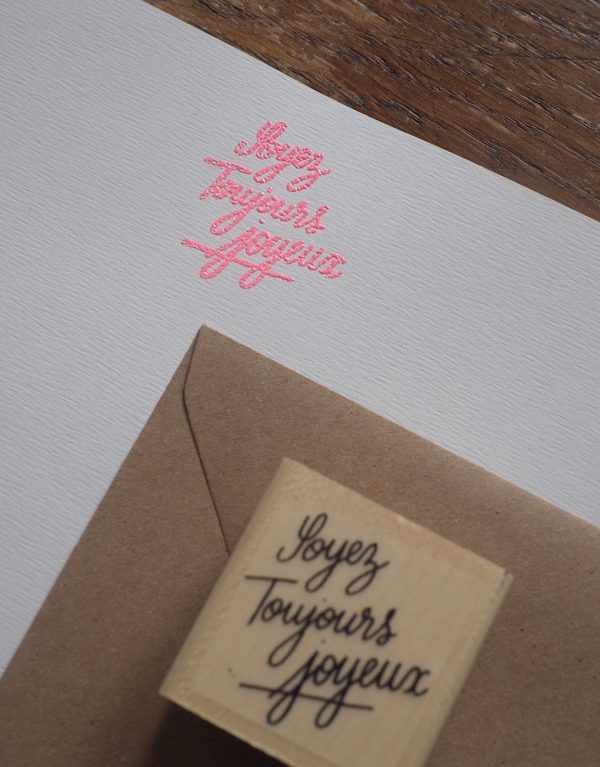 Soyez
Toujours
joyeux
Soyez
Toujours
joyeux